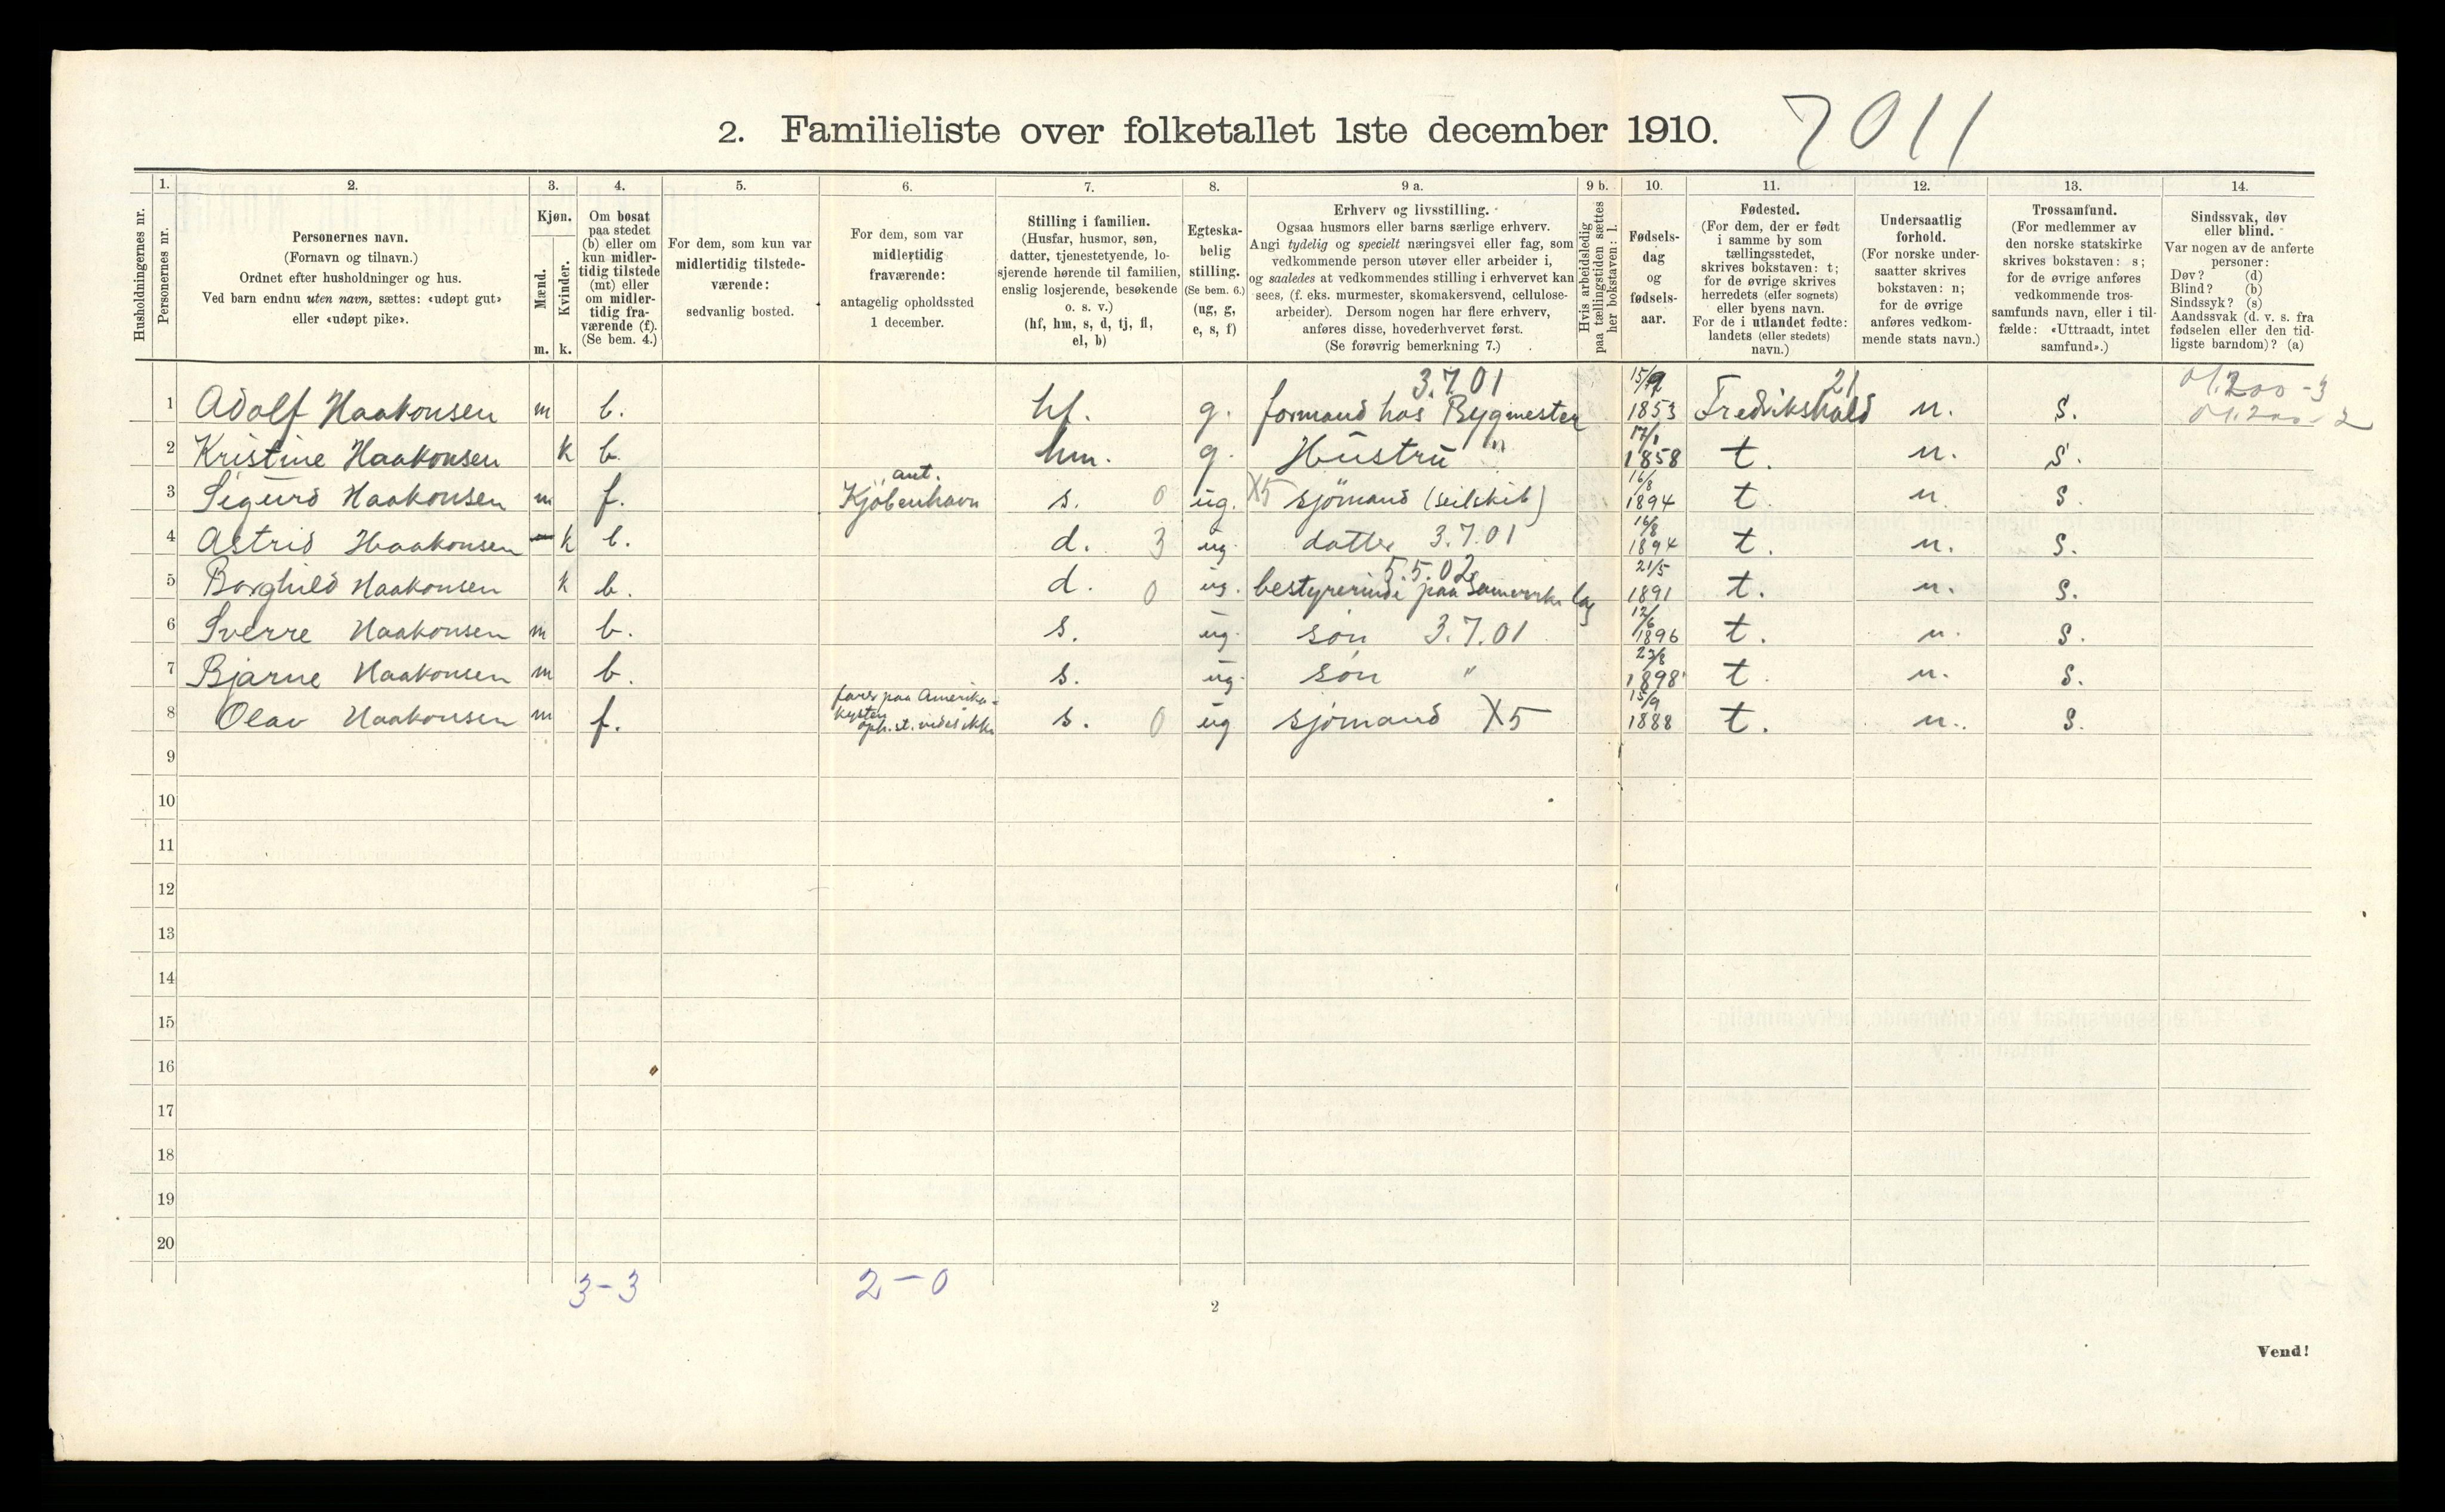 2. Familieliste over folketallet 1ste december 1910. 7011
1. 2. 3. 4. 5. 6. 7. 8. 9 a. 9 b. 10. 11. 12. 13. 14.
Husholdningernes nr.
Personernes nr.
Personernes navn.
(Fornavn og tilnavn.)
Ordnet efter husholdninger og hus.
Ved barn endnu uten navn, sættes: «udøpt gut»
eller «udøpt pike».
Kjøn.
Mænd.
Kvinder.
m. k.
Om bosat
paa stedet
(b) eller om
kun midler-
tidig tilstede
(mt) eller
om midler-
tidig fra-
værende (f).
(Se bem. 4.)
For dem, som kun var
midlertidig tilstede-
værende:
sedvanlig bosted.
For dem, som var
midlertidig
fraværende:
antagelig opholdssted
1 december.
Stilling i familien.
(Husfar, husmor, søn,
datter, tjenestetyende, lo-
sjerende hørende til familien,
enslig losjerende, besøkende
o. s. v.)
(hf, hm, s, d, tj, fl,
el, b)
Egteska-
belig
stilling.
(Se bem. 6.)
(ug, g,
e, s, f)
Erhverv og livsstilling.
Ogsaa husmors eller barns særlige erhverv.
Angi tydelig og specielt næringsvei eller fag, som
vedkommende person utøver eller arbeider i,
og saaledes at vedkommendes stilling i erhvervet kan
sees, (f. eks. murmester, skomakersvend, cellulose-
arbeider). Dersom nogen har flere erhverv,
anføres disse, hovederhvervet først.
(Se forøvrig bemerkning 7.)
Hvis arbeidsledig
paa tællingstiden sættes
her bokstaven: l.
Fødsels-
dag
og
fødsels-
aar.
Fødested.
(For dem, der er født
i samme by som
tællingsstedet,
skrives bokstaven: t;
for de øvrige skrives
herredets (eller sognets)
eller byens navn.
For de i utlandet fødte:
landets (eller stedets)
navn.)
Undersaatlig
forhold.
(For norske under-
saatter skrives
bokstaven: n;
for de øvrige
anføres vedkom-
mende stats navn.)
Trossamfund.
(For medlemmer av
den norske statskirke
skrives bokstaven: s;
for de øvrige anføres
vedkommende tros-
samfunds navn, eller i til-
fælde: «Uttraadt, intet
samfund».)
Sindssvak, døv
eller blind.
Var nogen av de anførte
personer:
Døv? (d)
Blind? (b)
Sindssyk? (s)
Aandssvak (d. v. s. fra
fødselen eller den tid-
ligste barndom)? (a)
3.7.01 15/9 21 01.200-3
1 Adolf Haakonsen m b. hf. g. formand hos Bygmester 1853 Fredrikshald n. s. 01.200-2
17/1
2 Kristine Haakonsen k b. hm. g. Hustru " 1858 t. n. s.
ant. 16/8
3 Sigurd Haakonsen m f. Kjöbenhavn s. 0 ug. X5 sjömand (seilskib) 1894 t n s
16/8
4 Astrid Haakonsen k b. d. 3 ug. datter 3.7.01 1894 t. n. s.
5.5.02 21/5
5 Borghild Haakonsen k b. d. 0 ug. bestyrerinde paa Samvirkelag 1891 t. n. s.
12/6
6 Sverre Haakonsen m b. s. ug. søn 3.7.01 1896 t. n. s.
23/8
7 Bjarne Haakonsen m b. s. ug. søn " 1898 t. n. s.
farer paa Amerika- 15/9
kysten
8 Olav Haakonsen m f. oph. st. vides ikke s. 0 ug sjømand X5 1888 t. n. s.
9
10
11
12
13
14
15
16
17
18
19
20
3-3 2-0
2
Vend!